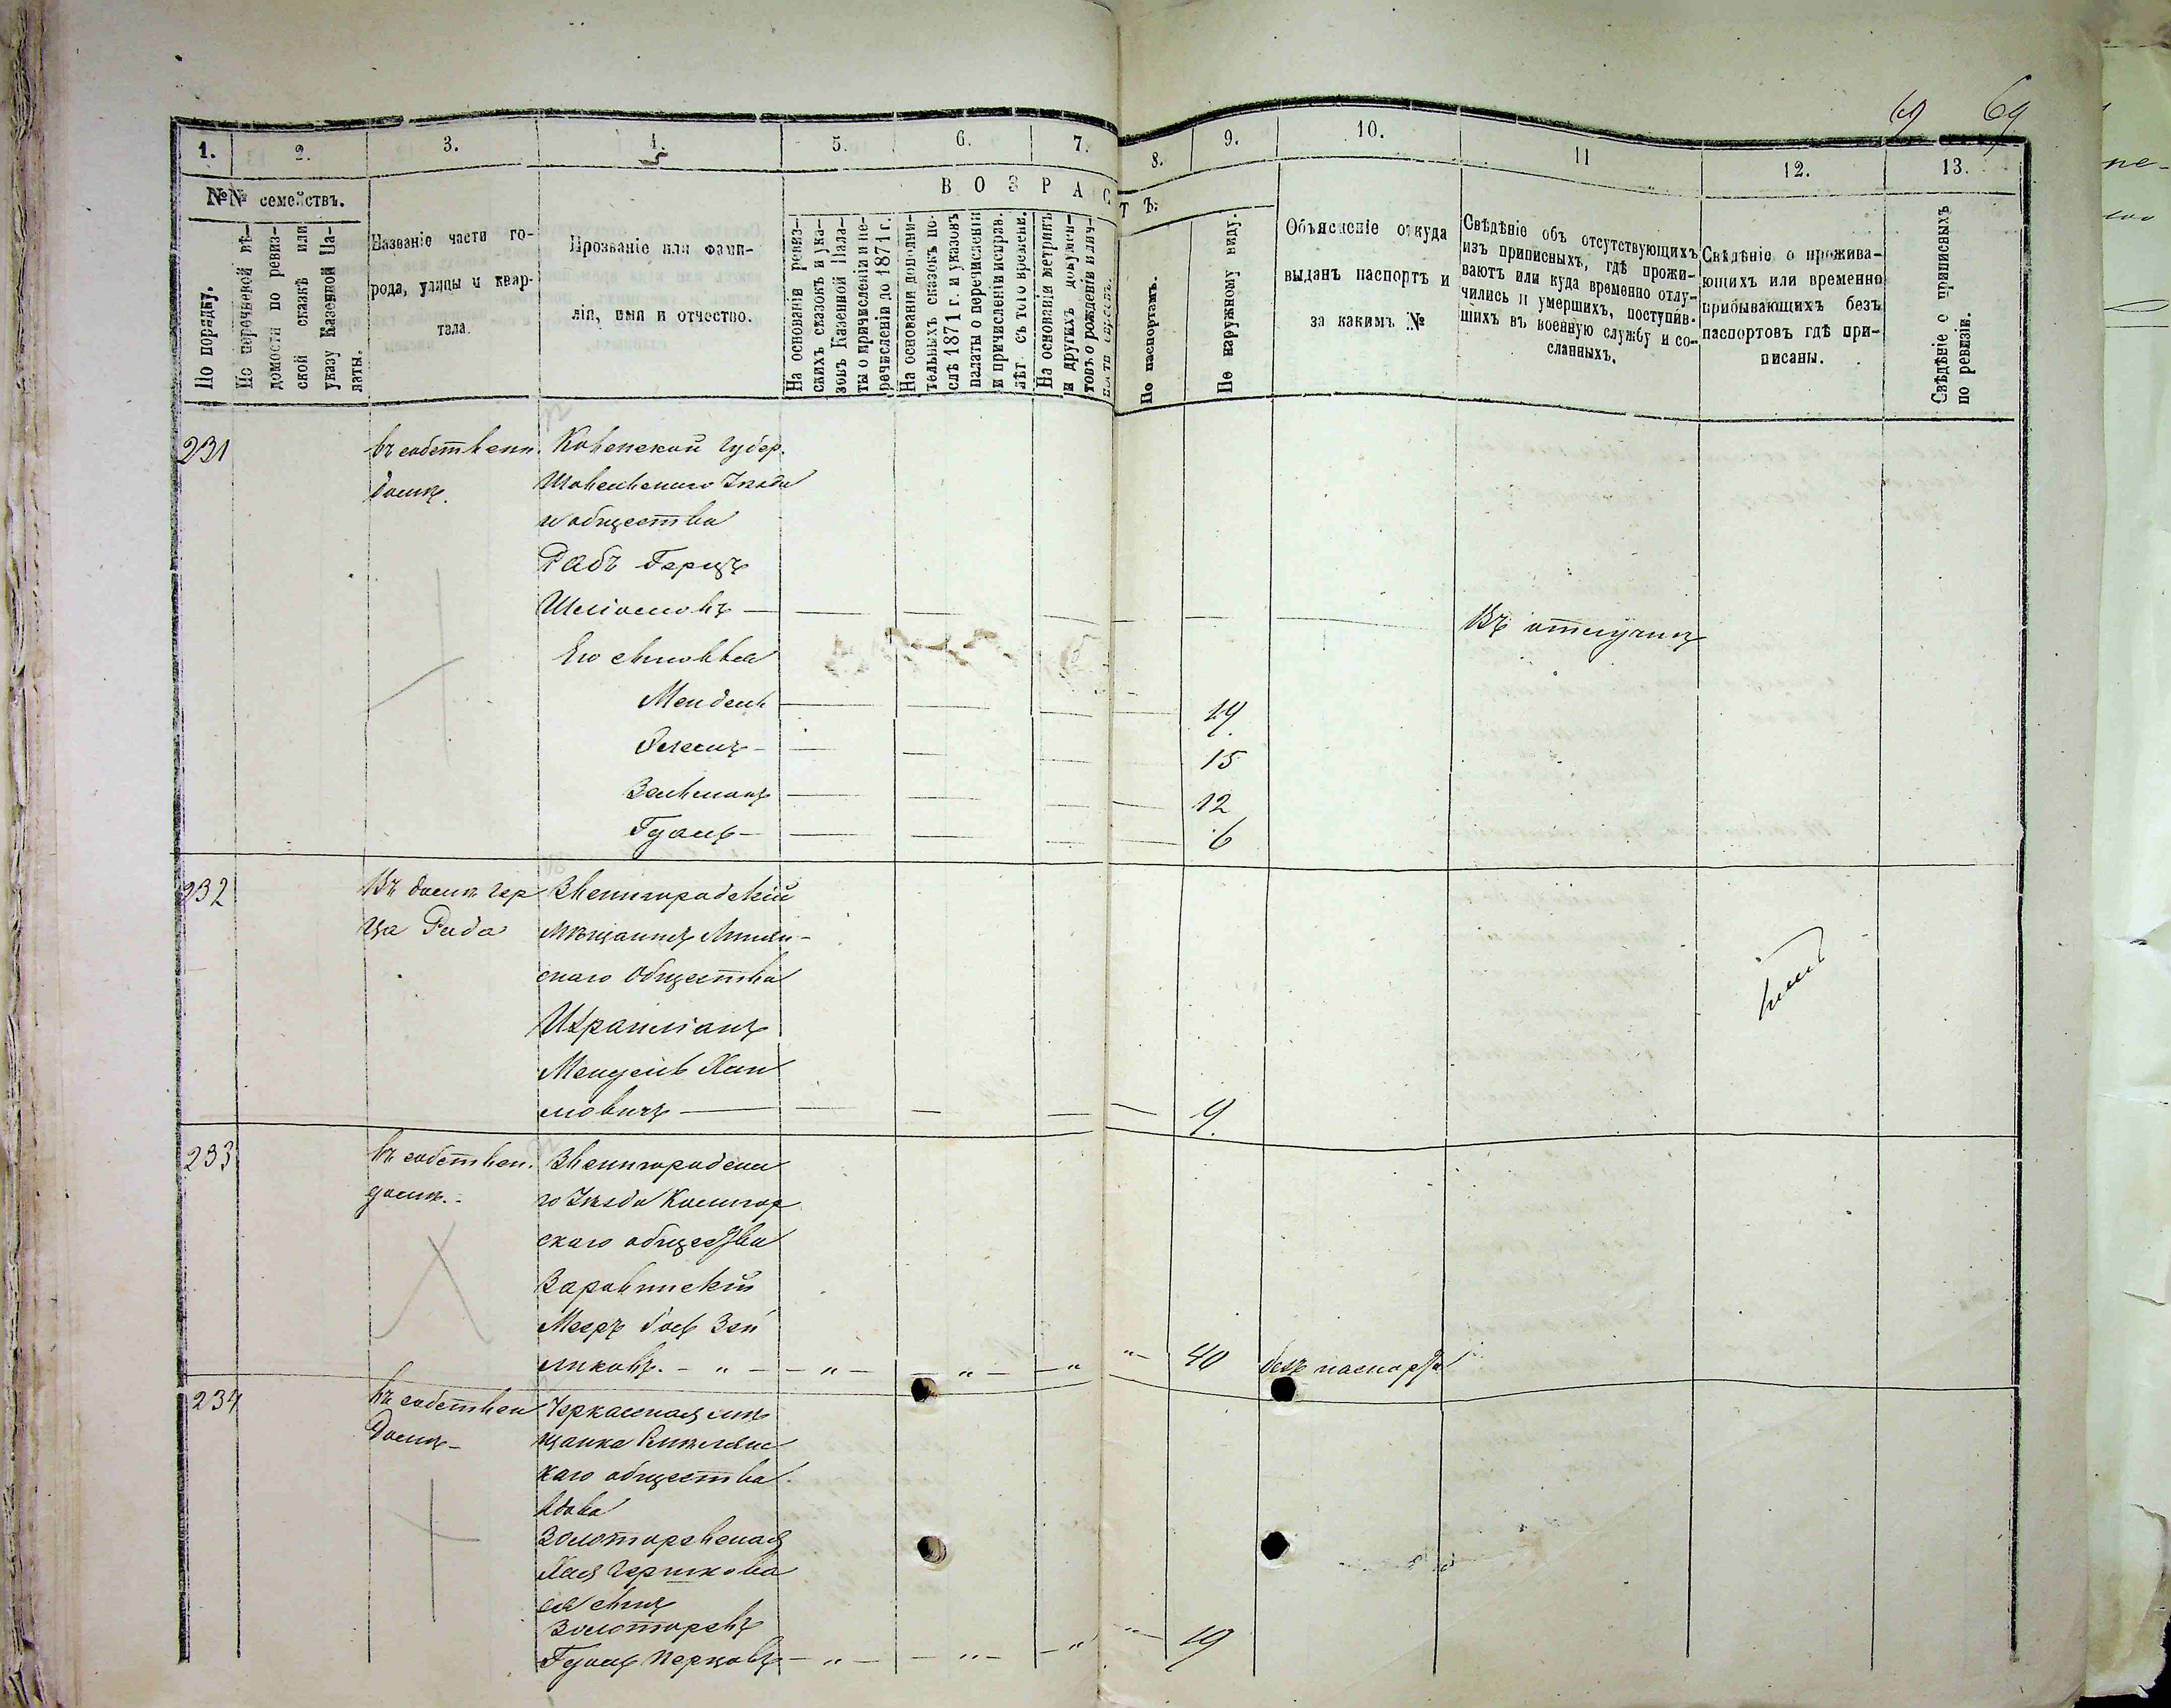 69 69
1. 2. 3. 4. 5. 6. 7. 8. 9. 10. 11 12. 13.
№№ семействъ.
По порядку.
По перечневой вѣ-
домости по ревиз-
ской сказкѣ или
указу Казенной Па-
латы.
Названіе части го-
рода, улицы и квар-
тала.
Прозваніе или фами-
лія, имя и отчество.
ВОЗРАСТЪ:
На основаніи ревиз-
скихъ сказокъ и ука-
зовъ Казенной Пала-
ты о причисленіи и пе-
речисленіи до 1871 г.
На основаніи дополни-
тельныхъ сказокъ по-
слѣ 1871 г. и указовъ
палаты о перечисленіи
и причисленіи исправ.
лѣт. съ того времени.
На основаніи метрикъ
и другихъ докумен-
товъ о рожденіи или
По паспортамъ.
По наружному виду.
Объясненіе откуда
выданъ паспортъ и
за какимъ №
Свѣдѣніе объ отсутствующихъ
изъ приписныхъ, гдѣ прожи-
ваютъ или куда временно отлу-
чились и умершихъ, поступив-
шихъ въ военную службу и со-
сланныхъ.
Свѣдѣніе о прожива-
ющихъ или временно
прибывающихъ безъ
паспортовъ гдѣ при-
писаны.
Свѣдѣніе о приписныхъ
по ревизіи.
231 въ собственн. Ковенской губер.
домѣ. Шавельскаго Уѣзда
и общества
Рабъ Герцъ
— — — — — Въ отлучкѣ
Его сыновья
Мендель — — — — 19
— — — — 15
Зельманъ — — — — 12
— — — — 6
232 Въ домѣ Гер
ца Раба Звенигородскій
мѣщанинъ
скаго Общества
Мендель Хаи
мовичъ — — — — 9.
233 въ собствен. Звенигородска
домѣ. го Уѣзда
скаго общества
Мееръ Іось Зей
ликовъ. — „ — — „ — — „ — — „ „ — 40 безъ паспорта
234 въ собствен Черкасская мѣ
домѣ — щанка
каго общества
вдова
Золотаревская
Хая Гершкова
ея сынъ
Золотаревъ
— „ — — „ — — „ „ — 19